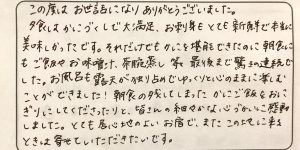 この度はお世話になりありがとうございました。
夕食はかにづくしで大満足、お刺身もとても新鮮で本当に
美味しかったです。それだけでもかにを堪能できたのに朝食に
もご飯やお味噌汁、茶碗蒸し 等 最後まで驚きの連続で
した。お風呂も露天が貸し切りでゆっくりと心のままに楽しむ
ことができました！朝食の残してしまったかにご飯をおに
ぎりにしてくださったりと、皆さんの細やかな心づかいに感動
しました。とても居心地のよいお宿で、またこの地に来る
ときは寄せていただきたいです。